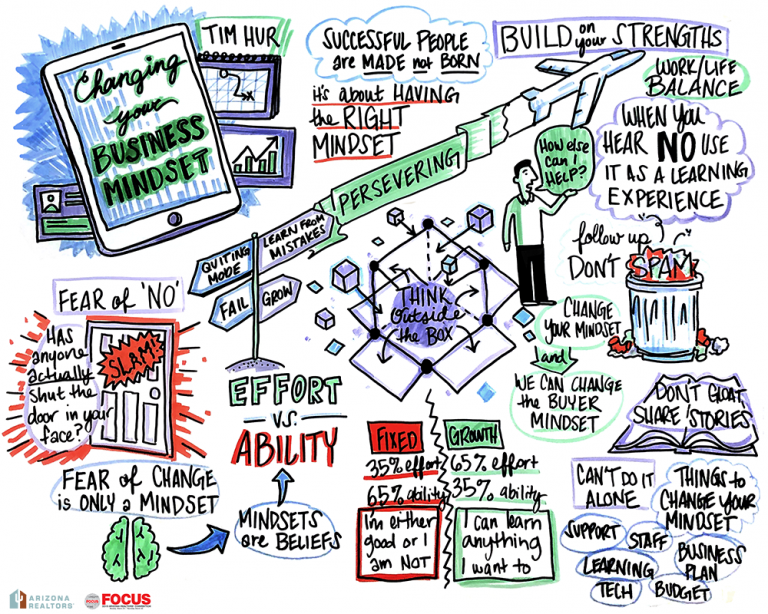 Changing
your
BUSINESS
MINDSET
TIM HUR
SUCCESSFUL PEOPLE
are MADE not BORN
it's about HAVING
the RIGHT
MINDSET
BUILD on your STRENGTHS
WORK/LIFE
BALANCE
PERSEVERING
How else
can I
HELP?
WHEN YOU
HEAR NO USE
IT AS A LEARNING
EXPERIENCE
follow up
DON'T SPAM!
QUITING
MODE
LEARN FROM
MISTAKES
FAIL
GROW
THINK
Outside
the BOX
FEAR of 'NO'
HAS
anyone
actually
shut the
door in your
face?
SLAM!
CHANGE
YOUR MINDSET
and
WE CAN CHANGE
the BUYER
MINDSET
EFFORT
VS.
ABILITY
DON'T GLOAT
SHARE STORIES
FIXED
35% effort
65% ability
I'm either
good or I
am NOT
GROWTH
65% effort
35% ability
I can learn
anything
I want to
FEAR OF CHANGE
is ONLY a MINDSET
MINDSETS
are BELIEFS
CAN'T DO IT
ALONE
THINGS to
CHANGE YOUR
MINDSET
SUPPORT
STAFF
LEARNING
BUSINESS
PLAN
TECH
BUDGET
ARIZONA
REALTORS®
FOCUS
FOCUS